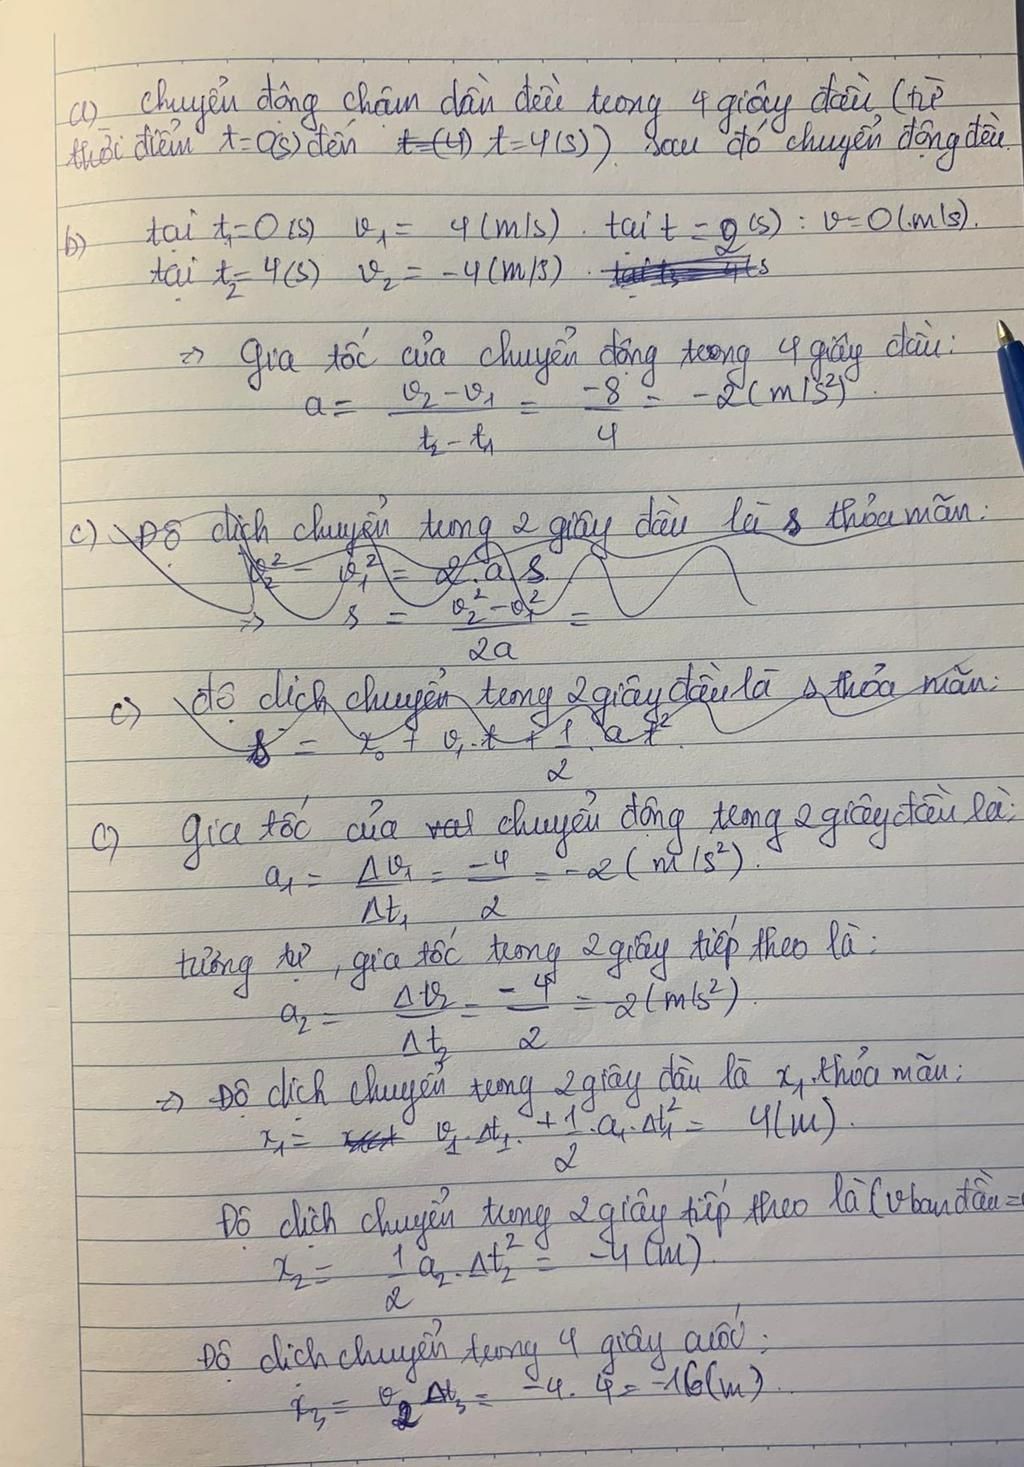 a) chuyển động chậm dần đều trong 4 giây đầu (từ
thời điểm t=0(s) đến t=(4) t=4(s)). Sau đó chuyển động đều.
b) tại t₁=0(s) v₁= 4(m/s). tại t=2(s): v=0(m/s).
tại t₂=4(s) v₂= -4(m/s).
=> Gia tốc của chuyển động trong 4 giây đầu:
a= (v₂-v₁)/(t₂-t₁) = -8/4 = -2(m/s²).
c) Độ dịch chuyển trong 2 giây đầu là s thỏa mãn:
v₂² - v₁² = 2.a.s.
=> s = (v₂²-v₁²)/2a =
c) độ dịch chuyển trong 2 giây đầu là s thỏa mãn:
s = x₀ + v₁.t + 1/2.at².
c) gia tốc của chuyển động trong 2 giây đầu là:
a₁= Δv₁/Δt₁ = -4/2 = -2(m/s²).
tương tự, gia tốc trong 2 giây tiếp theo là:
a₂= Δv₂/Δt₂ = -4/2 = -2(m/s²).
=> Độ dịch chuyển trong 2 giây đầu là x₁ thỏa mãn:
x₁= v₁.Δt₁.+1/2.a₁.Δt₁²= 4(m).
Độ dịch chuyển trong 2 giây tiếp theo là (v ban đầu=
x₂= 1/2 a₂.Δt₂² = -4(m).
Độ dịch chuyển trong 4 giây cuối:
x₃= v₂ Δt₃= -4.4=-16(m).